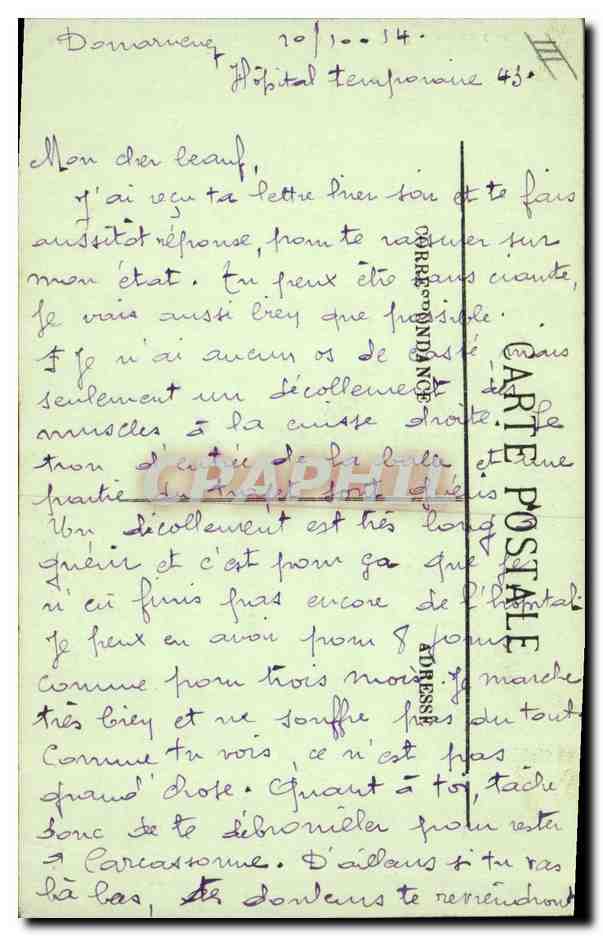 Douarnenez 20/10..14.
Hôpital temporaire 43.
III
Mon cher beauf,
J'ai reçu ta lettre hier soir et te fais
aussitôt réponse, pour te rassurer sur
mon état. Tu peux être sans crainte,
je vais aussi bien que possible.
Je n'ai aucun os de cassé mais
seulement un décollement des
muscles à la cuisse droite. Le
trou d'entrée de la balle et une
partie du trajet sont guéris
Un décollement est très long
guérir et c'est pour ça que je
n'en finis pas encore de l'hôpital.
Je peux en avoir pour 8 jours
comme pour trois mois. Je marche
très bien et ne souffre pas du tout.
Comme tu vois, ce n'est pas
grand'chose. Quant à toi, tâche
donc de te débrouiller pour rester
à Carcassonne. D'ailleurs si tu vas
là bas, les douleurs te reviendront
CARTE POSTALE
CORRESPONDANCE
ADRESSE
CPAPHIL